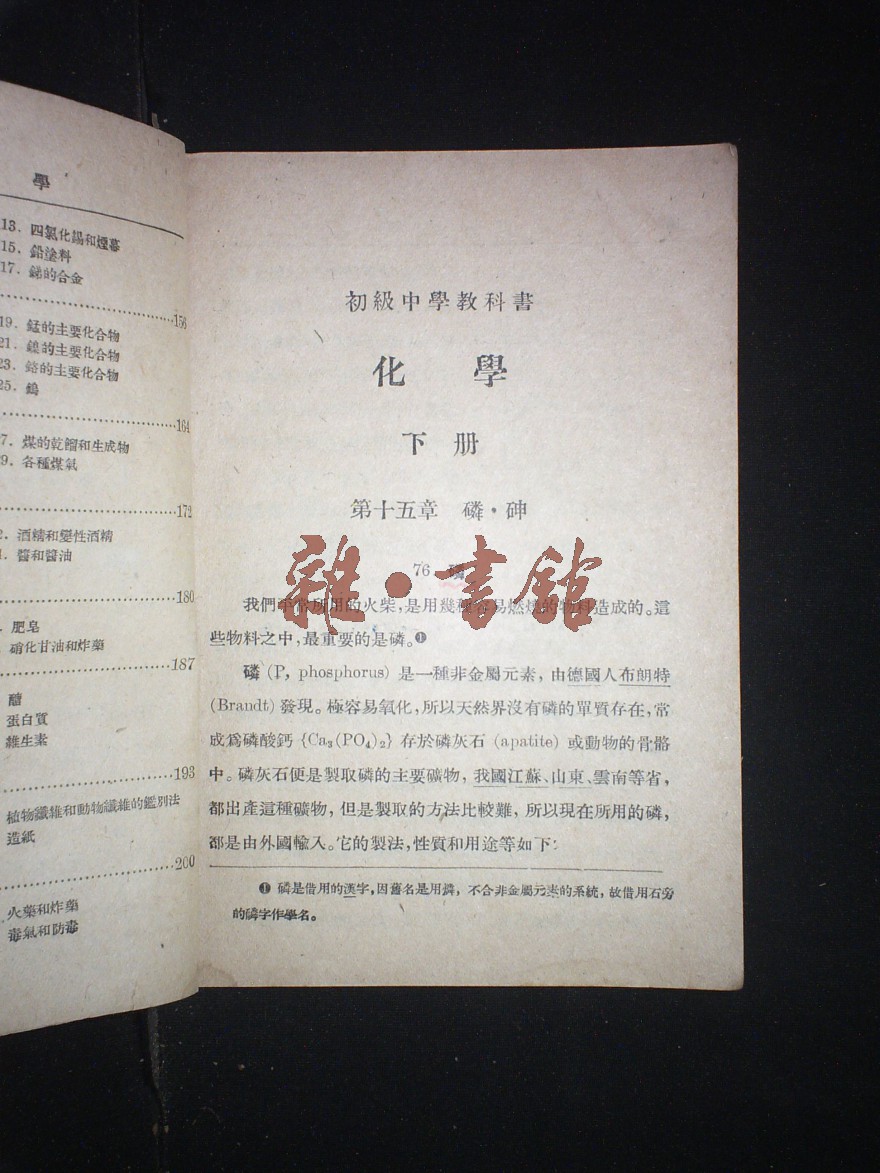 學
13. 四氯化錫和煙幕
15. 鉛塗料
17. 銻的合金
156
19. 錳的主要化合物
21. 鎳的主要化合物
23. 鉻的主要化合物
25. 鎢
164
7. 煤的乾餾和生成物
9. 各種煤氣
172
2. 酒精和變性酒精
4. 醬和醬油
180
肥皂
硝化甘油和炸藥
187
醣
蛋白質
維生素
193
植物纖維和動物纖維的鑑別法
造紙
200
火藥和炸藥
毒氣和防毒
初級中學教科書
化學
下册
第十五章 磷·砷
76 磷
我們平常所用的火柴,是用幾種容易燃燒的物料造成的。這
些物料之中,最重要的是磷。❶
磷 (P, phosphorus) 是一種非金屬元素,由德國人布朗特
(Brandt) 發現。極容易氧化,所以天然界沒有磷的單質存在,常
成爲磷酸鈣 {Ca₃(PO₄)₂} 存於磷灰石 (apatite) 或動物的骨骼
中。磷灰石便是製取磷的主要礦物,我國江蘇、山東、雲南等省,
都出產這種礦物,但是製取的方法比較難,所以現在所用的磷,
都是由外國輸入。它的製法,性質和用途等如下:
❶ 磷是借用的漢字,因舊名是用燐,不合非金屬元素的系統,故借用石旁
的磷字作學名。
雜·書館